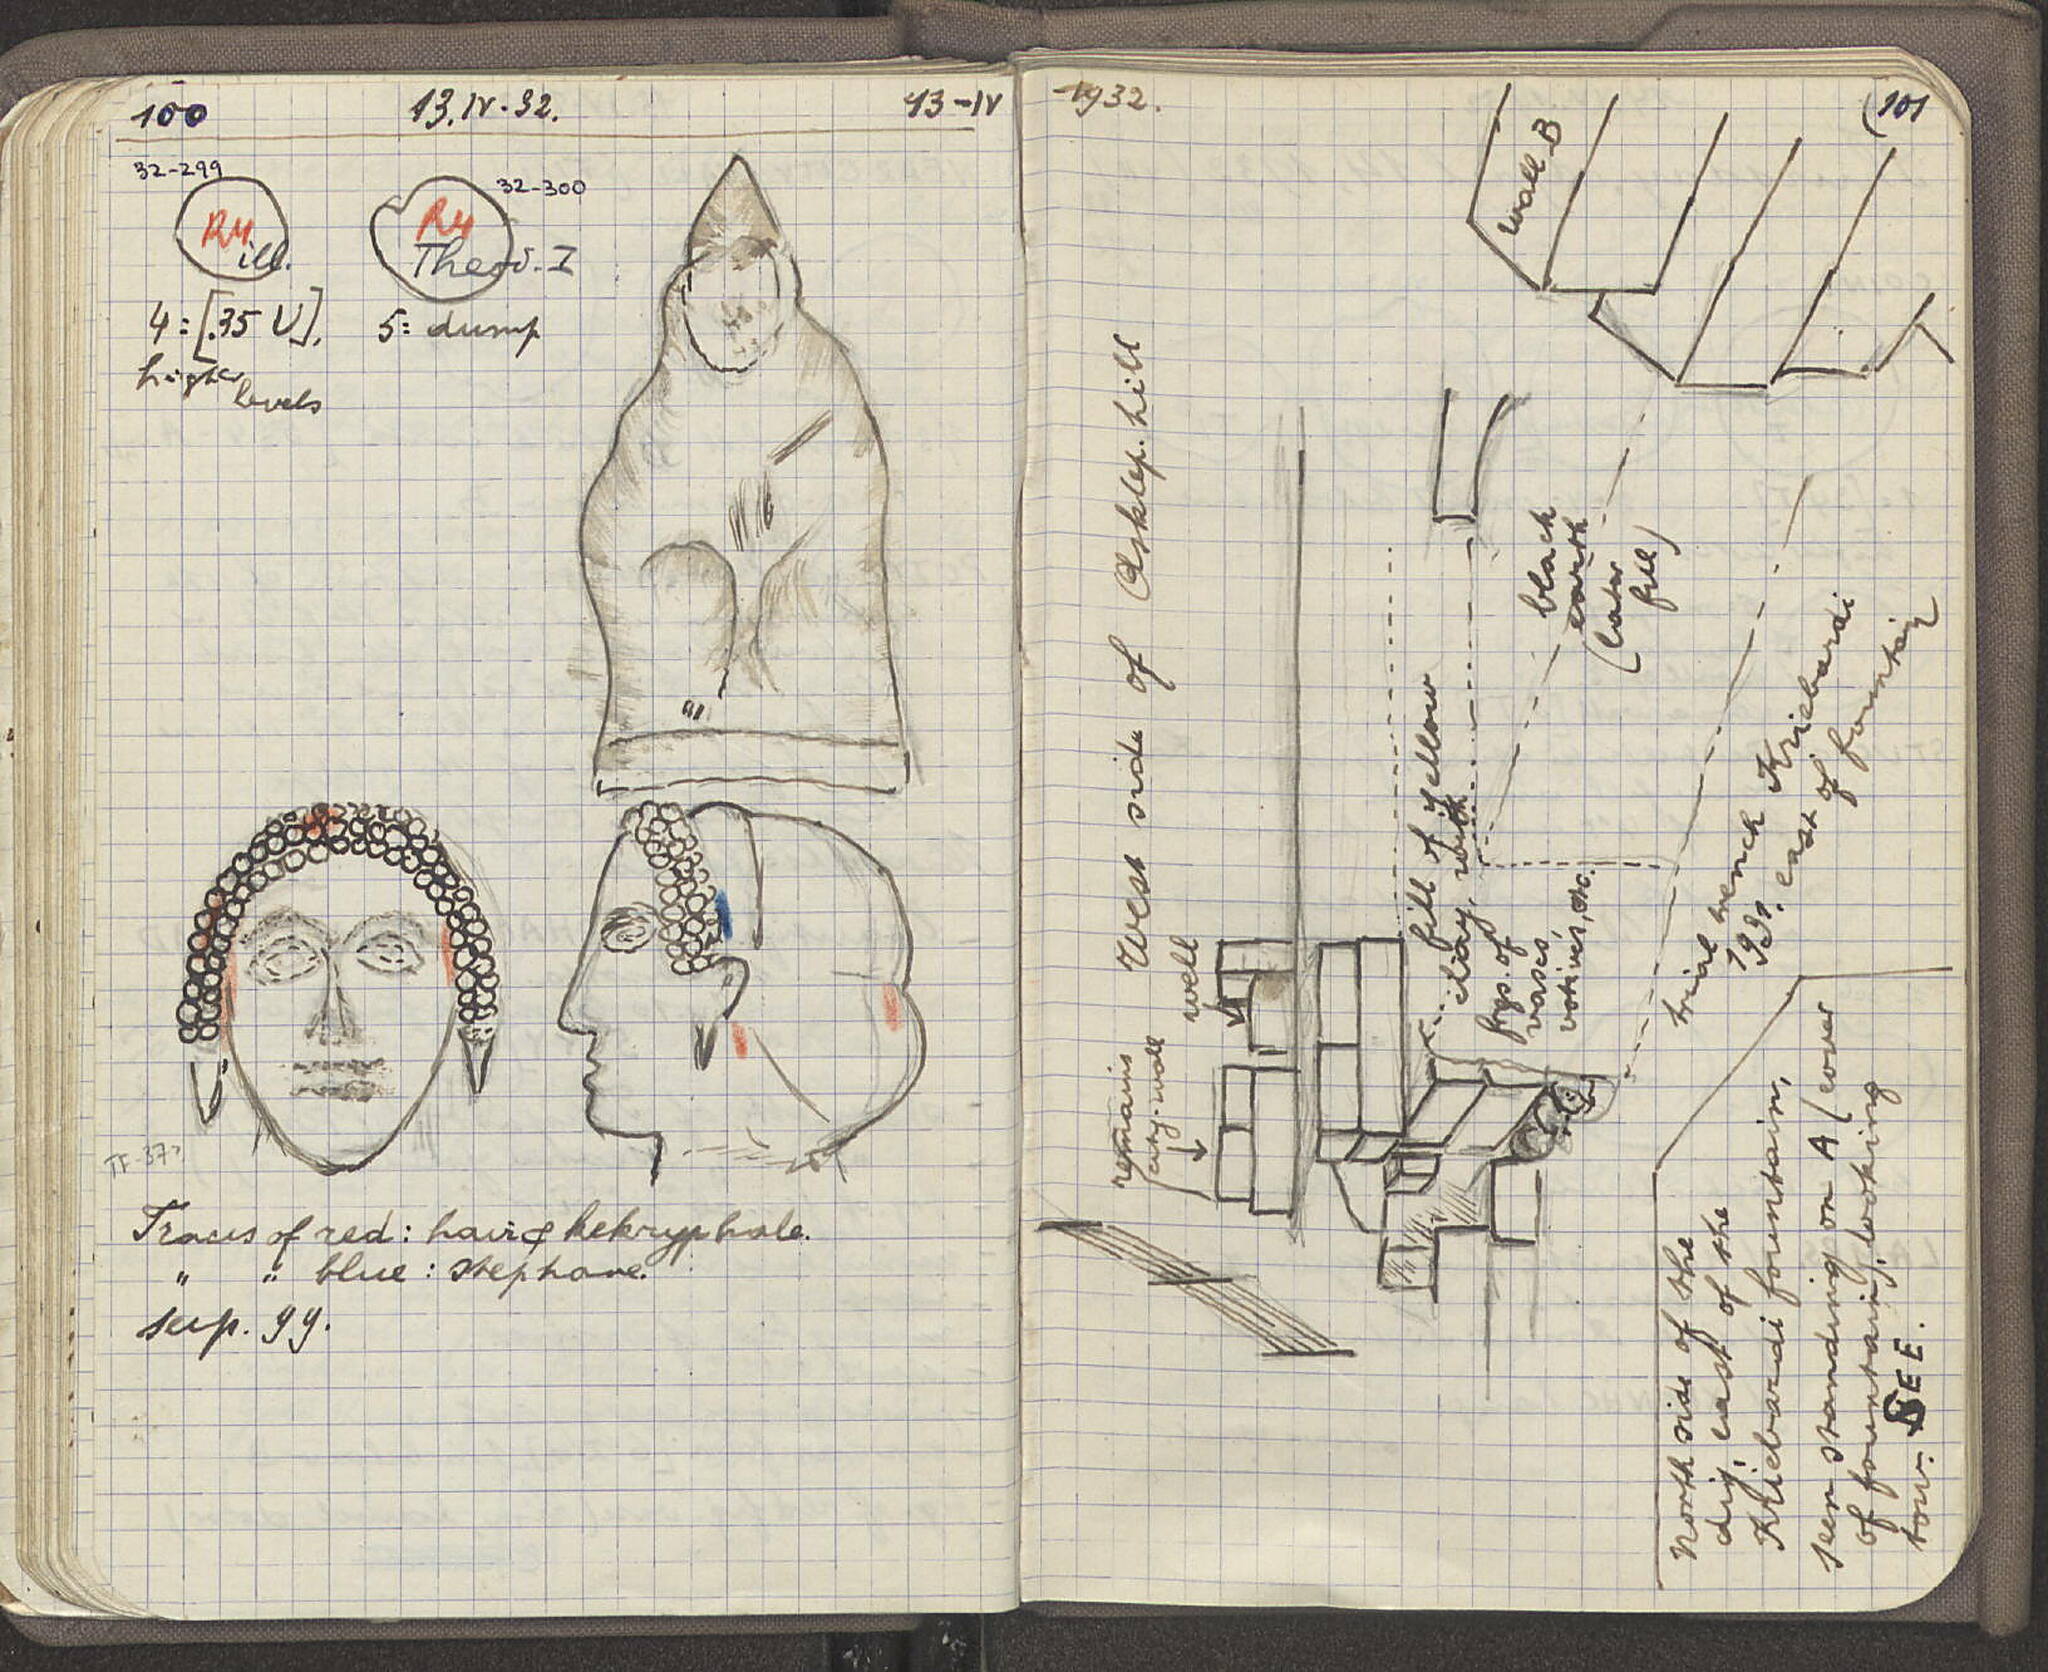 100
13.IV.32.
13-IV
32-299
R4
ill.
32-300
R4
Theod. I
4=[.35 U],
higher
levels
5= dump
Traces of red: hair & kekryphale.
" " blue: stephane.
see p. 99.
1932.
(101
West side of Asklep. hill
remains
city-wall
well
fill of yellow
clay, with
frgs. of
vases,
votives, etc.
black
earth
(later
fill)
wall B
trial trench Kriebardi
east of fountain
North side of the
dig, east of the
Kriebardi fountain,
seen standing on A (cover
of fountain), looking
tow. SEE.